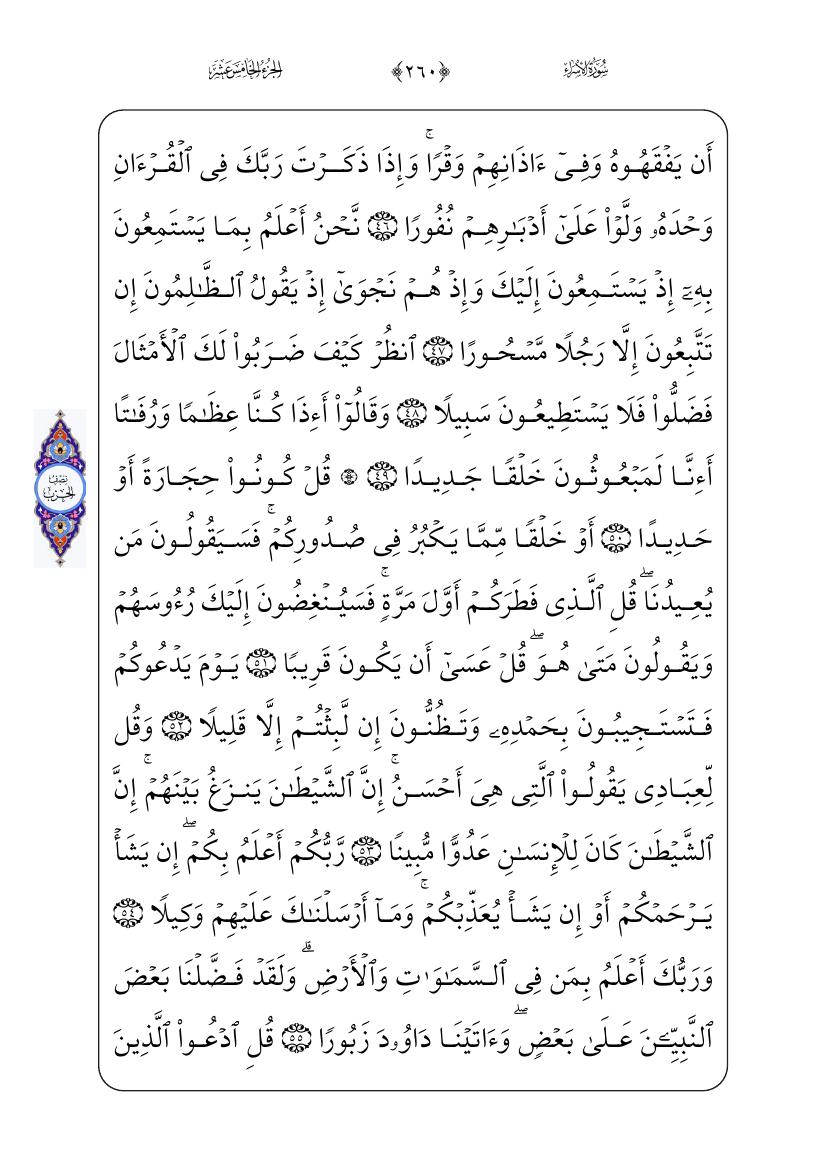 سُورَةُ الإِسْرَاءِ ﴿٢٦٠﴾ الجُزْءُ الخَامِسَ عَشَرَ
أَن يَفۡقَهُوهُ وَفِيٓ ءَاذَانِهِمۡ وَقۡرٗاۚ وَإِذَا ذَكَرۡتَ رَبَّكَ فِي ٱلۡقُرۡءَانِ
وَحۡدَهُۥ وَلَّوۡاْ عَلَىٰٓ أَدۡبَٰرِهِمۡ نُفُورٗا ٤٦ نَّحۡنُ أَعۡلَمُ بِمَا يَسۡتَمِعُونَ
بِهِۦٓ إِذۡ يَسۡتَمِعُونَ إِلَيۡكَ وَإِذۡ هُمۡ نَجۡوَىٰٓ إِذۡ يَقُولُ ٱلظَّٰلِمُونَ إِن
تَتَّبِعُونَ إِلَّا رَجُلٗا مَّسۡحُورًا ٤٧ ٱنظُرۡ كَيۡفَ ضَرَبُواْ لَكَ ٱلۡأَمۡثَالَ
فَضَلُّواْ فَلَا يَسۡتَطِيعُونَ سَبِيلٗا ٤٨ وَقَالُوٓاْ أَءِذَا كُنَّا عِظَٰمٗا وَرُفَٰتًا
أَءِنَّا لَمَبۡعُوثُونَ خَلۡقٗا جَدِيدٗا ٤٩ ۞ قُلۡ كُونُواْ حِجَارَةً أَوۡ
حَدِيدًا ٥٠ أَوۡ خَلۡقٗا مِّمَّا يَكۡبُرُ فِي صُدُورِكُمۡۚ فَسَيَقُولُونَ مَن
يُعِيدُنَاۖ قُلِ ٱلَّذِي فَطَرَكُمۡ أَوَّلَ مَرَّةٖۚ فَسَيُنۡغِضُونَ إِلَيۡكَ رُءُوسَهُمۡ
وَيَقُولُونَ مَتَىٰ هُوَۖ قُلۡ عَسَىٰٓ أَن يَكُونَ قَرِيبٗا ٥١ يَوۡمَ يَدۡعُوكُمۡ
فَتَسۡتَجِيبُونَ بِحَمۡدِهِۦ وَتَظُنُّونَ إِن لَّبِثۡتُمۡ إِلَّا قَلِيلٗا ٥٢ وَقُل
لِّعِبَادِي يَقُولُواْ ٱلَّتِي هِيَ أَحۡسَنُۚ إِنَّ ٱلشَّيۡطَٰنَ يَنزَغُ بَيۡنَهُمۡۚ إِنَّ
ٱلشَّيۡطَٰنَ كَانَ لِلۡإِنسَٰنِ عَدُوّٗا مُّبِينٗا ٥٣ رَّبُّكُمۡ أَعۡلَمُ بِكُمۡۖ إِن يَشَأۡ
يَرۡحَمۡكُمۡ أَوۡ إِن يَشَأۡ يُعَذِّبۡكُمۡۚ وَمَآ أَرۡسَلۡنَٰكَ عَلَيۡهِمۡ وَكِيلٗا ٥٤
وَرَبُّكَ أَعۡلَمُ بِمَن فِي ٱلسَّمَٰوَٰتِ وَٱلۡأَرۡضِۗ وَلَقَدۡ فَضَّلۡنَا بَعۡضَ
ٱلنَّبِيِّـۧنَ عَلَىٰ بَعۡضٖۖ وَءَاتَيۡنَا دَاوُۥدَ زَبُورٗا ٥٥ قُلِ ٱدۡعُواْ ٱلَّذِينَ
نِصْفُ
الحِزْبِ